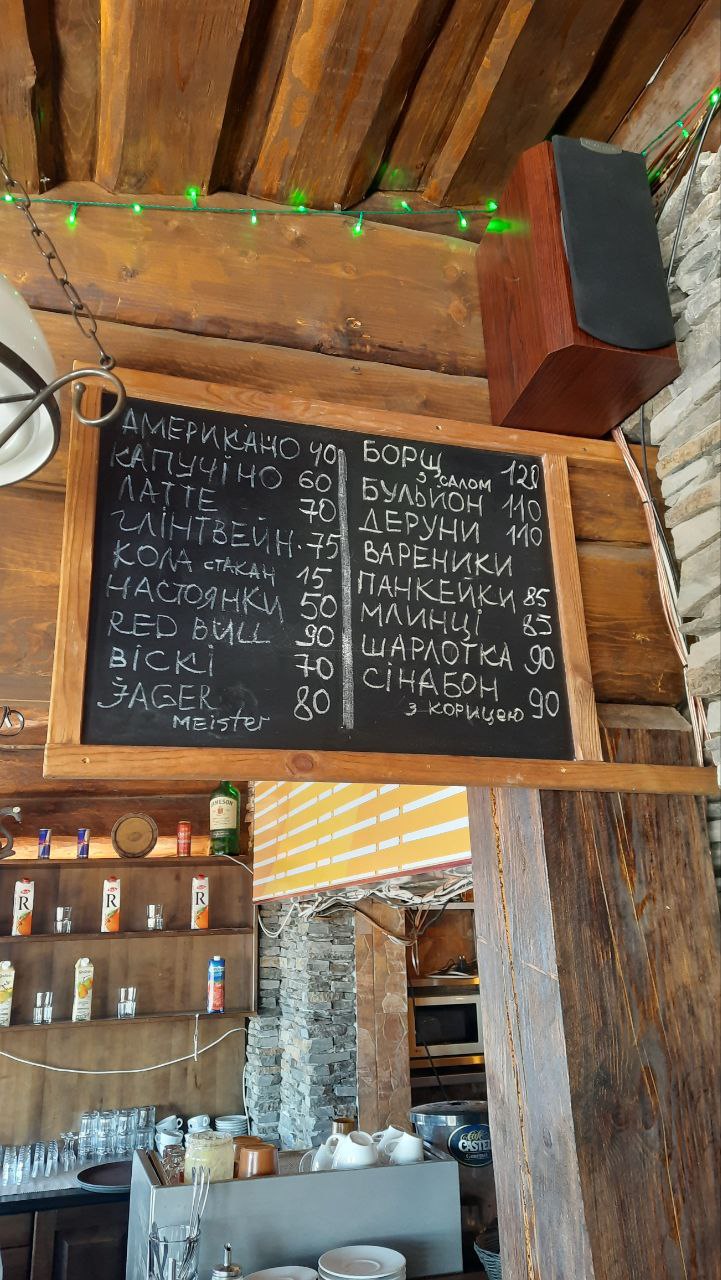 АМЕРИКАНО 40
КАПУЧІНО 60
ЛАТТЕ 70
ГЛІНТВЕЙН. 75
КОЛА СТАКАН 15
НАСТОЯНКИ 50
RED BULL 90
ВІСКІ 70
JAGER 80
MEISTER
БОРЩ 120
З САЛОМ
БУЛЬЙОН 110
ДЕРУНИ 110
ВАРЕНИКИ
ПАНКЕЙКИ 85
МЛИНЦІ 85
ШАРЛОТКА 90
СІНАБОН
З КОРИЦЕЮ 90
JAMESON
R
R
R